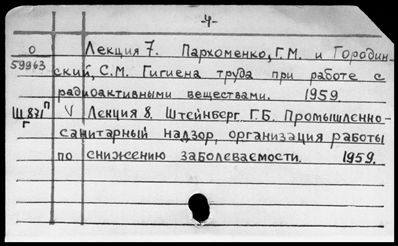 -4-
О Лекция 7. Пархоменко, Г.М. и Городин-
59963 ский, С.М. Гигиена труда при работе с
радиоактивными веществами. 1959.
Ш871п/г V Лекция 8. Штейнберг Г.Б. Промышленно-
санитарный надзор, организация работы
по снижению заболеваемости. 1959.